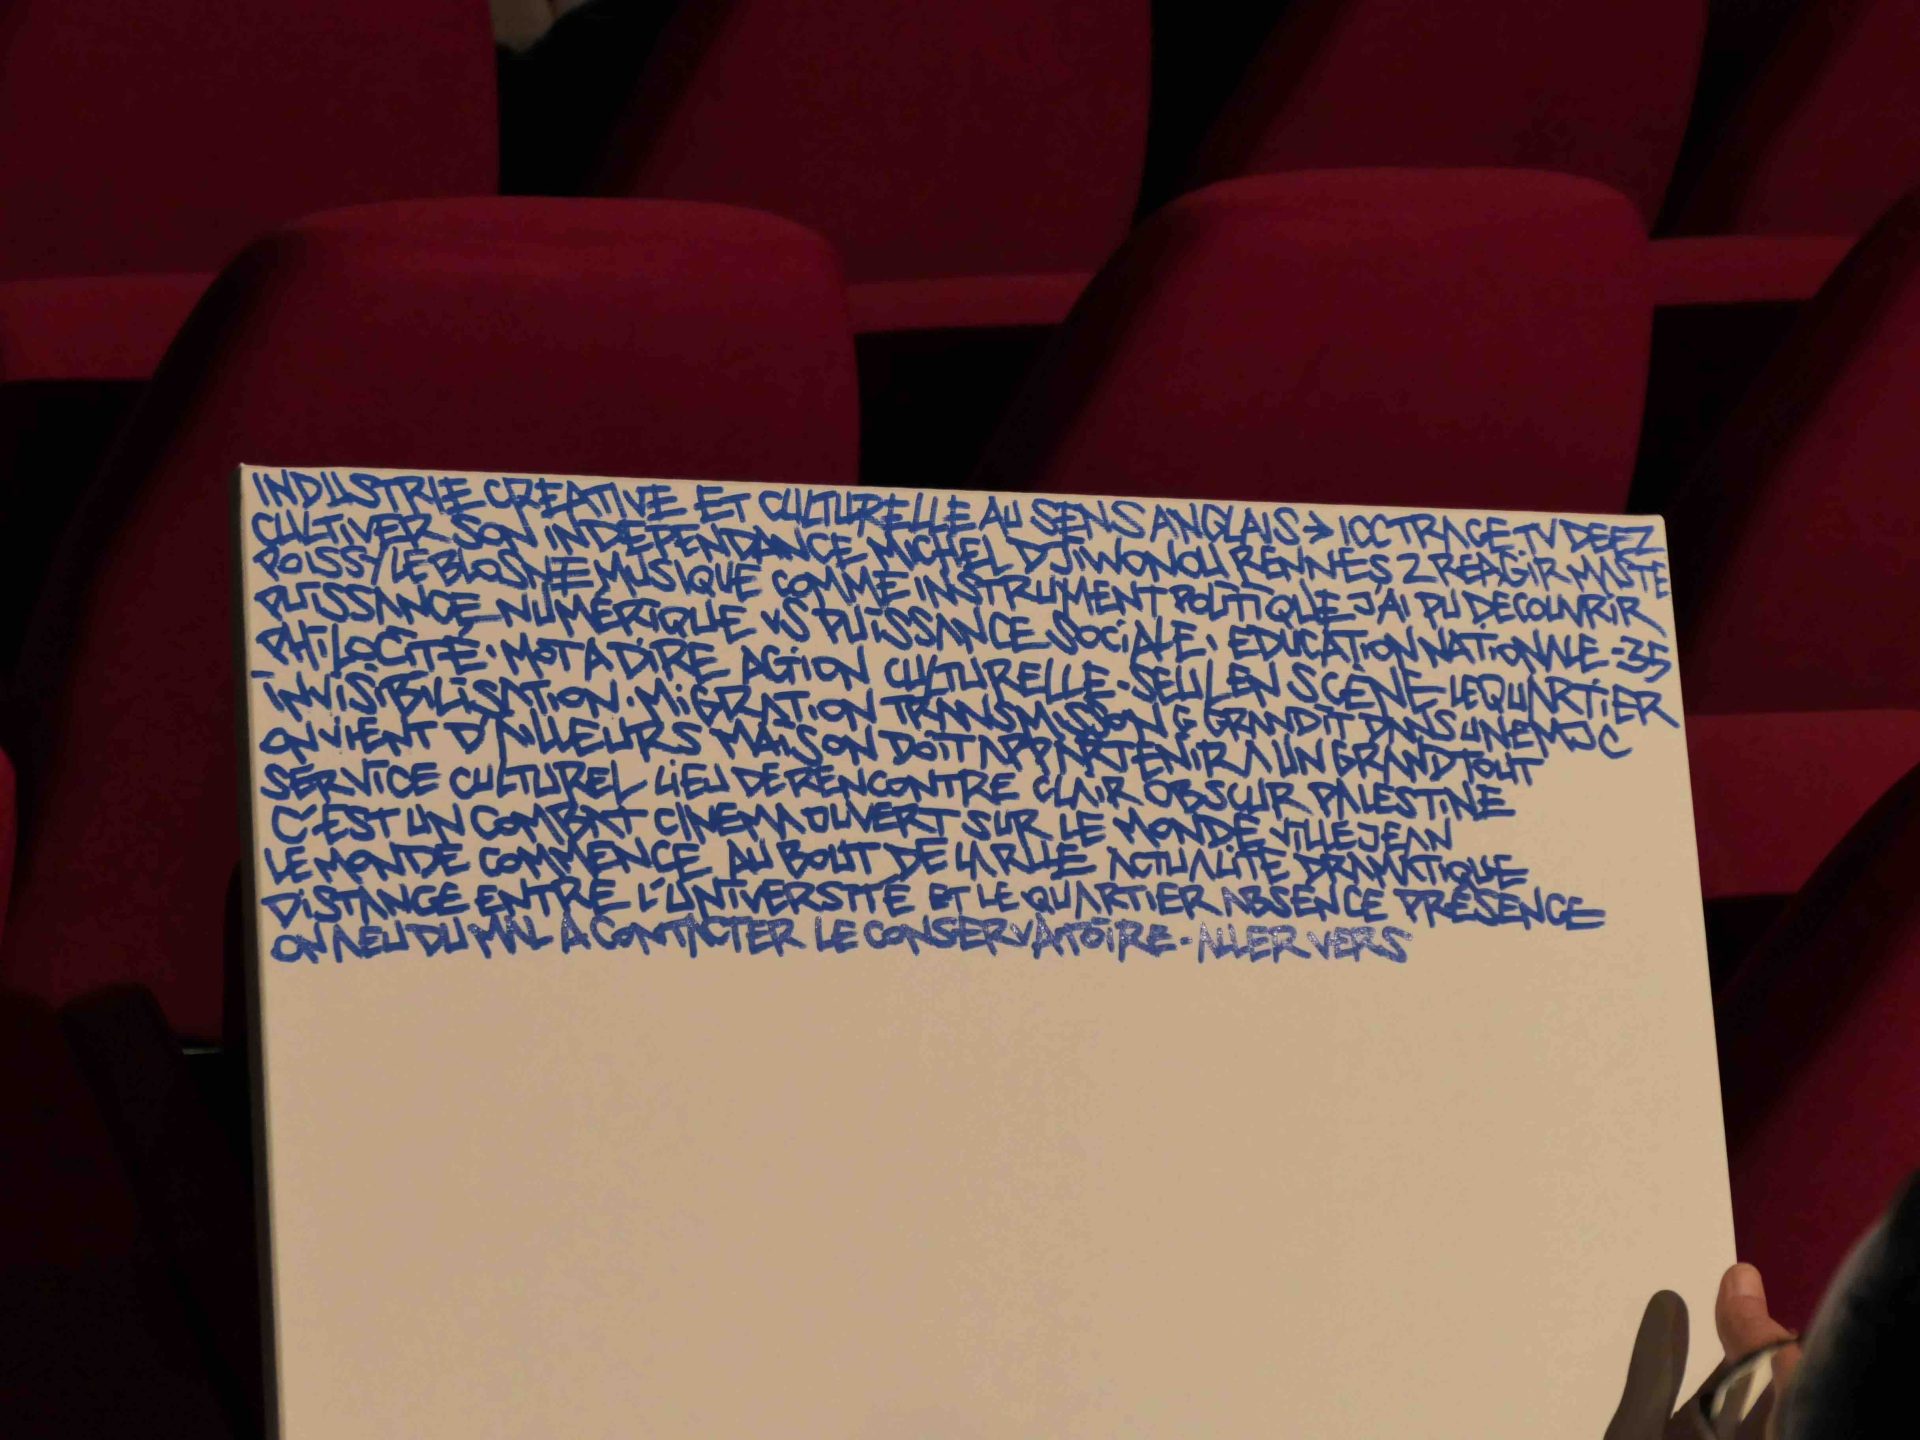 INDUSTRIE CREATIVE ET CULTURELLE AU SENS ANGLAIS > ICC TRACE TV DEEZ
CULTIVER SON INDEPENDANCE MICHEL DJIWONOU RENNES 2 REAGIR MASTE
POISSY LE BLOSNE MUSIQUE COMME INSTRUMENT POLITIQUE J'AI PU DECOUVRIR
PUISSANCE NUMÉRIQUE VS PUISSANCE SOCIALE. EDUCATION NATIONALE - 35
PHILOCITÉ. MOT A DIRE ACTION CULTURELLE - SEUL EN SCÈNE LE QUARTIER
INVISIBILISATION. MIGRATION TRANSMISSION GRANDIT DANS UNE MJC
ON VIENT D'AILLEURS MAISON DOIT APPARTENIR A UN GRAND TOUT
SERVICE CULTUREL LIEU DE RENCONTRE CLAIR OBSCUR PALESTINE
C'EST UN COMBAT CINEMA OUVERT SUR LE MONDE VILLEJEAN
LE MONDE COMMENCE AU BOUT DE LA RUE ACTUALITÉ DRAMATIQUE
DISTANCE ENTRE L'UNIVERSITÉ ET LE QUARTIER ABSENCE PRÉSENCE
ON A EU DU MAL A CONTACTER LE CONSERVATOIRE. ALLER VERS